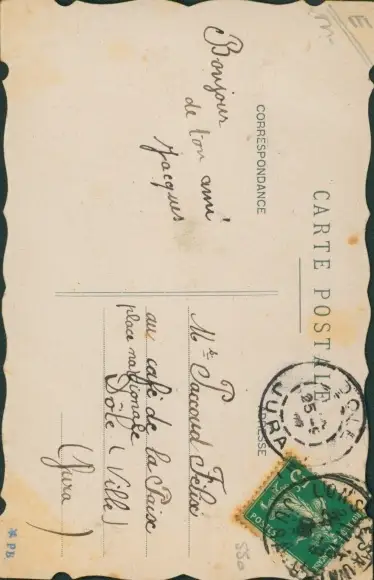 CARTE POSTALE
CORRESPONDANCE
ADRESSE
Bonjour
de ton ami
Jacques
Mr Paccoud Félix
au café de la Paise
place nationale
Dôle (Ville)
(Jura)
JURA
25-5
POSTES
* PB
550
E